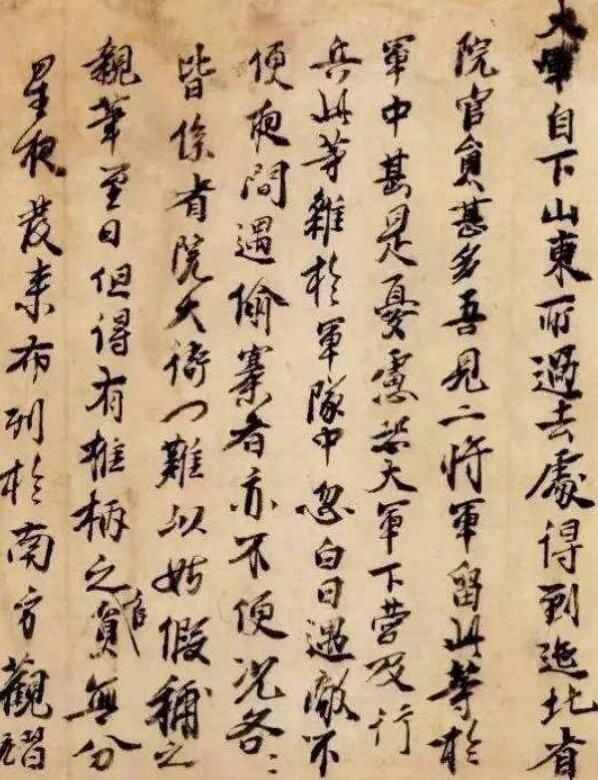 大軍自下山東所過去處得到迤北省
院官員甚多吾見二將軍留此等於
軍中甚是憂慮恐大軍下營及行
兵此等雜於軍隊中忽白日遇敵不
便夜間遇偷寨者亦不便況各〻
皆係省院大衙門難以姑假補之
親筆至日但得有椎柄之官員無分
星夜發來布列於南方觀